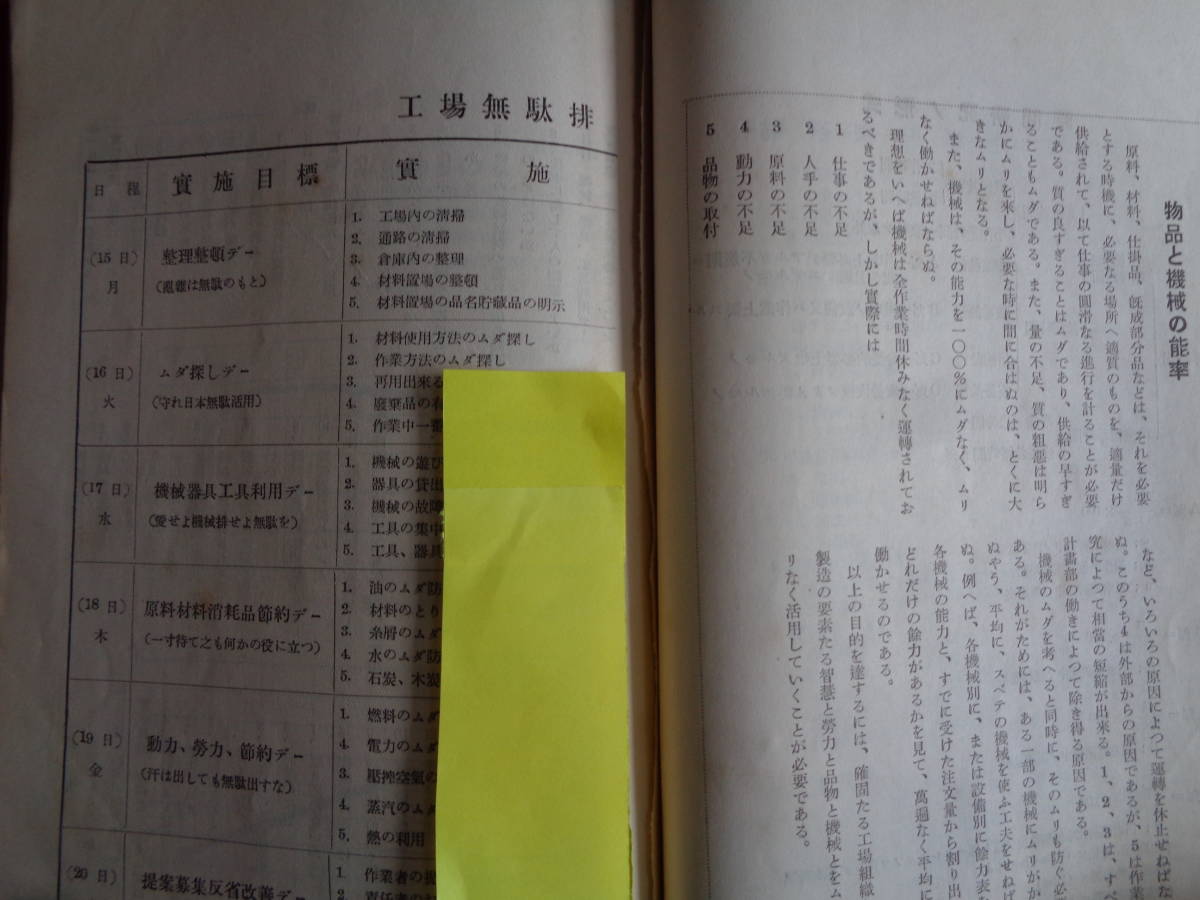 物品と機械の能率
原料、材料、仕掛品、旣成部分品などは、それを必要
とする時機に、必要なる場所へ適質のものを、適量だけ
供給されて、以て仕事の圓滑なる進行を計ることが必要
である。質の良すぎることはムダであり、供給の早すぎ
ることもムダである。また、量の不足、質の粗悪は明ら
かにムリを来し、必要な時に間に合はぬのは、とくに大
きなムリとなる。
また、機械は、その能力を一〇〇％にムダなく、ムリ
なく働かせねばならぬ。
理想をいへば機械は全作業時間休みなく運轉されてお
るべきであるが、しかし實際には
1 仕事の不足
2 人手の不足
3 原料の不足
4 動力の不足
5 品物の取付
など、いろいろの原因によつて運轉を休止せねばな
ぬ。このうち4は外部からの原因であるが、5は作業
究によつて相當の短縮が出來る。1、2、3は、すべ
計畫部の働きによつて除き得る原因である。
機械のムダを考へると同時に、そのムリも防ぐ必
ある。それがためには、ある一部の機械にムリがか
ぬやう、平均に、スベテの機械を使ふ工夫をせねば
ぬ。例へば、各機械別に、または設備別に餘力表を
各機械の能力と、すでに受けた注文量から割り出
どれだけの餘力があるかを見て、萬遍なく平均に
働かせるのである。
以上の目的を達するには、確固たる工場組織
製造の要素たる智慧と勞力と品物と機械とをム
リなく活用していくことが必要である。
工場無駄排
日程 實施目標 實施
(15日) 月
整理整頓デー
(亂雜は無駄のもと)
1. 工場内の清掃
2. 通路の清掃
3. 倉庫内の整理
4. 材料置場の整頓
5. 材料置場の品名貯藏品の明示
(16日) 火
ムダ探しデー
(守れ日本無駄活用)
1. 材料使用方法のムダ探し
2. 作業方法のムダ探し
3. 再用出來る
4. 廢棄品の
5. 作業中一番
(17日) 水
機械器具工具利用デー
(愛せよ機械排せよ無駄を)
1. 機械の遊び
2. 器具の貸出
3. 機械の故障
4. 工具の集中
5. 工具、器具
(18日) 木
原料材料消耗品節約デー
(一寸待て之も何かの役に立つ)
1. 油のムダ防
2. 材料のとり
3. 糸屑のムダ
4. 水のムダ防
5. 石炭、木炭
(19日) 金
動力、勞力、節約デー
(汗は出しても無駄出すな)
1. 燃料のムダ
4. 電力のムダ
3. 壓搾空氣の
4. 蒸汽のムダ
5. 熱の利用
(20日)
提案募集反省改善デー
1. 作業者の
2. 責任者の